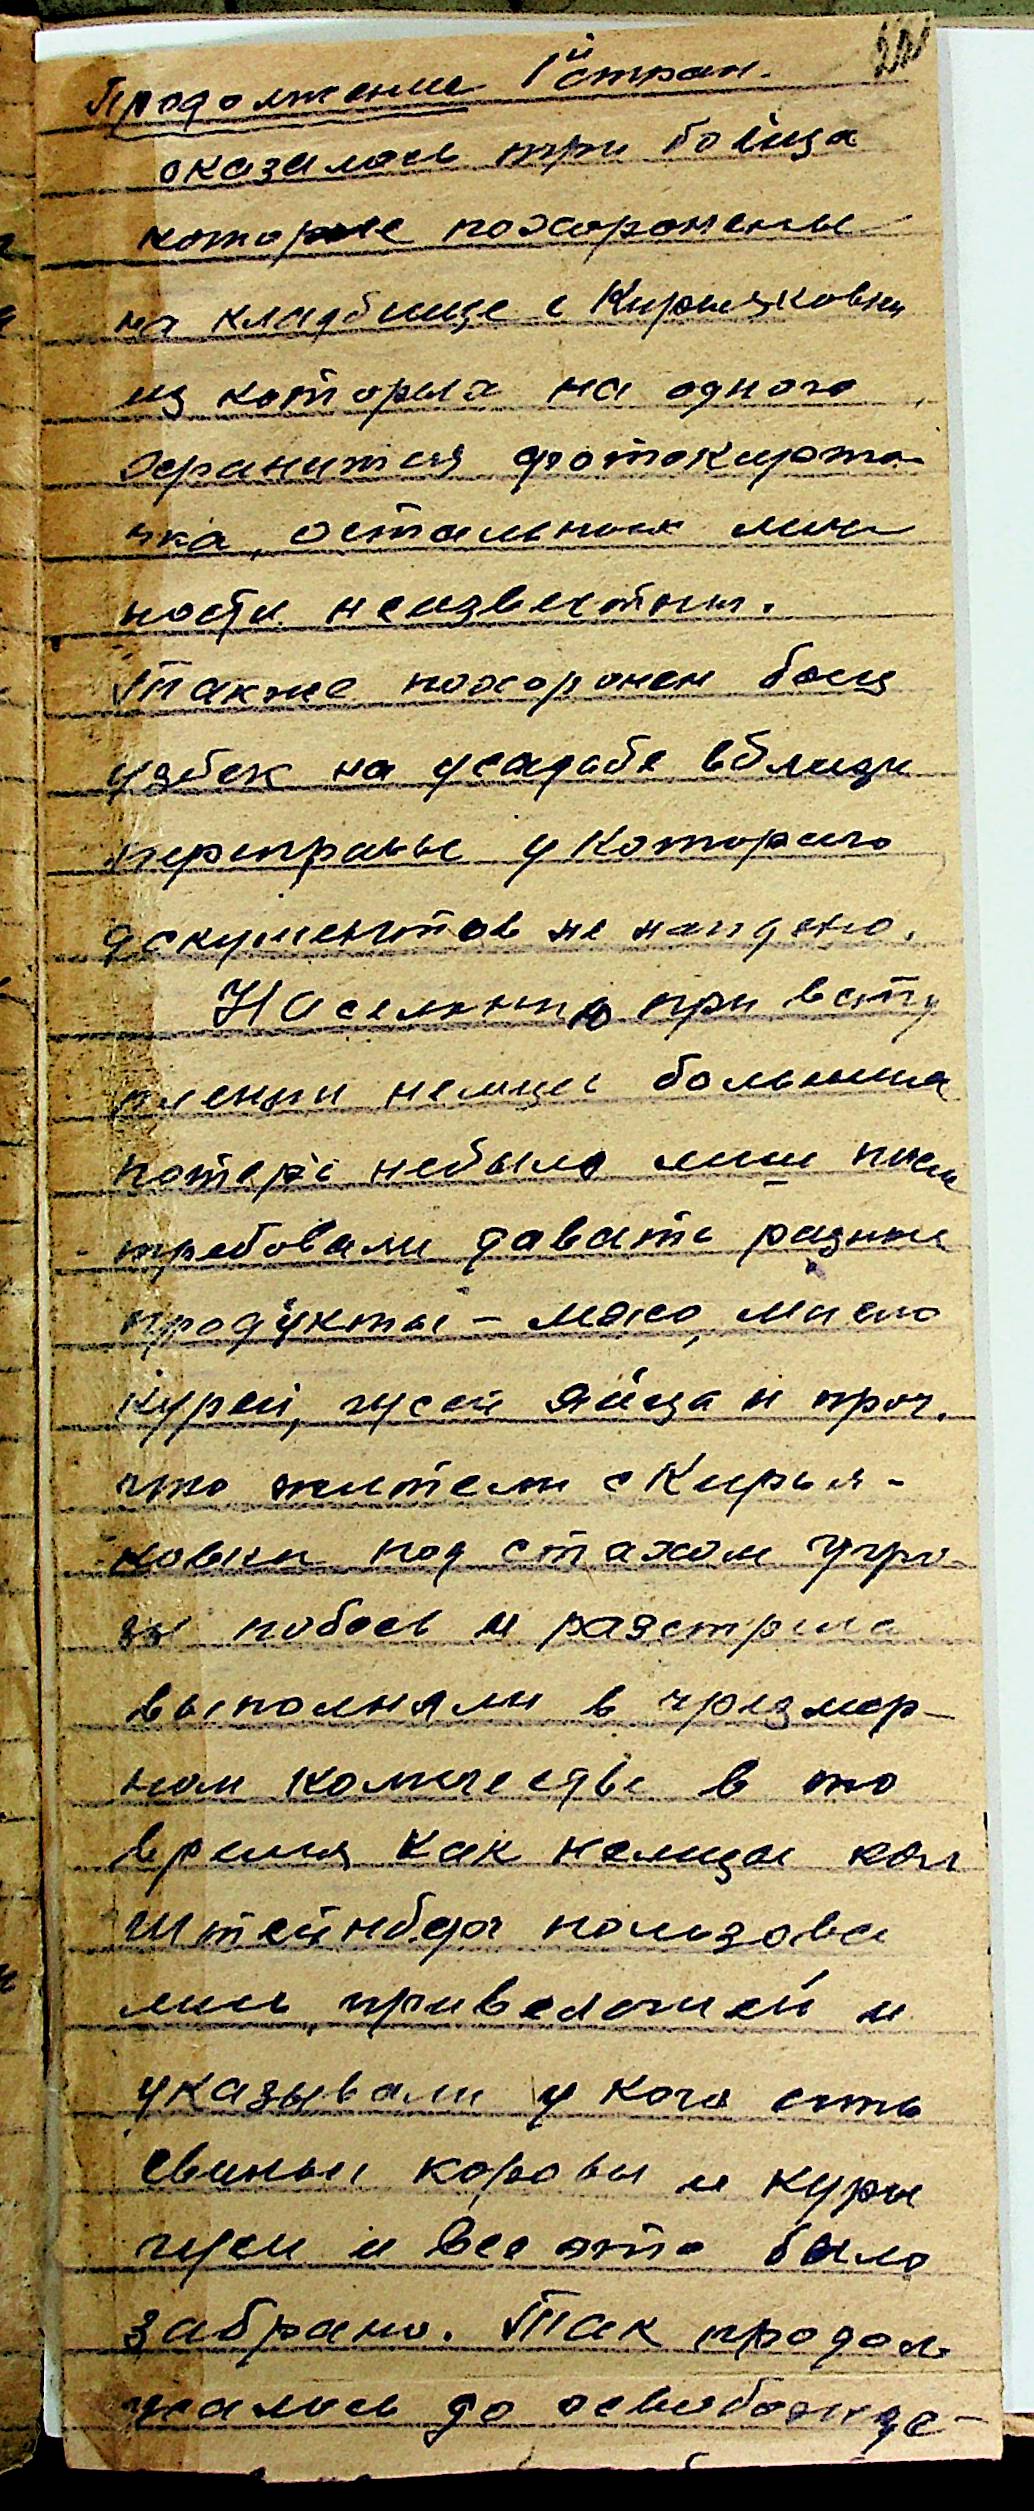 Продолжение 1й стран.
оказалось три бойца
которые похоронены
на кладбище с Кирьяковки
из которых на одного
хранится фотокарто
чка, остальных лич
ности неизвестны.
Также похоронен боец
узбек на усадьбе вблизи
переправы у которого
документов не найдено.
Населению при всту
плении немцев больших
потерь небыло лиш
требовали давать разные
продукты - мясо, масло
курей, гусей яйца и проч.
что жители с Кирья-
ковки под стахом угро
зы побоев и разстрела
выполняли в чрезмер-
ном количестве в то
время как немцы кол
Штейнберг пользова
лись привелегией и
указывали у кого есть
свиньи коровы и куры
гуси и все это было
забрано. Так продол
жалось до освобожде-